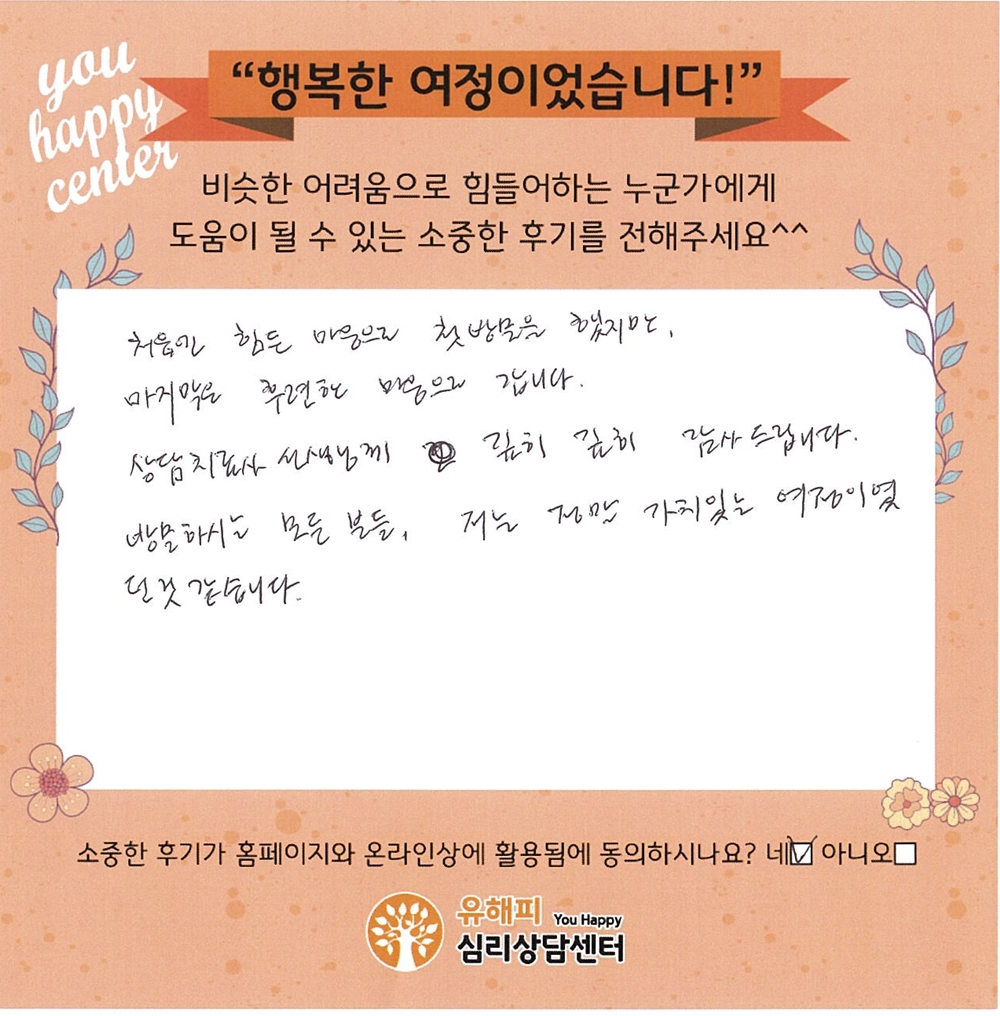 you
happy
center
“행복한 여정이었습니다!”
비슷한 어려움으로 힘들어하는 누군가에게
도움이 될 수 있는 소중한 후기를 전해주세요^^
처음엔 힘든 마음으로 첫방문을 했지만,
마지막은 후련한 마음으로 갑니다.
상담치료사 선생님께 깊히 깊히 감사드립니다.
방문하시는 모든 분들, 저는 정말 가치있는 여정이였
던것 같습니다.
소중한 후기가 홈페이지와 온라인상에 활용됨에 동의하시나요? 네☑ 아니오☐
유해피 You Happy
심리상담센터